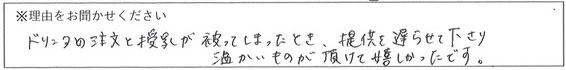 ※理由をお聞かせください
ドリンクの注文と授乳が被ってしまったとき、提供を遅らせて下さり
温かいものが頂けて嬉しかったです。